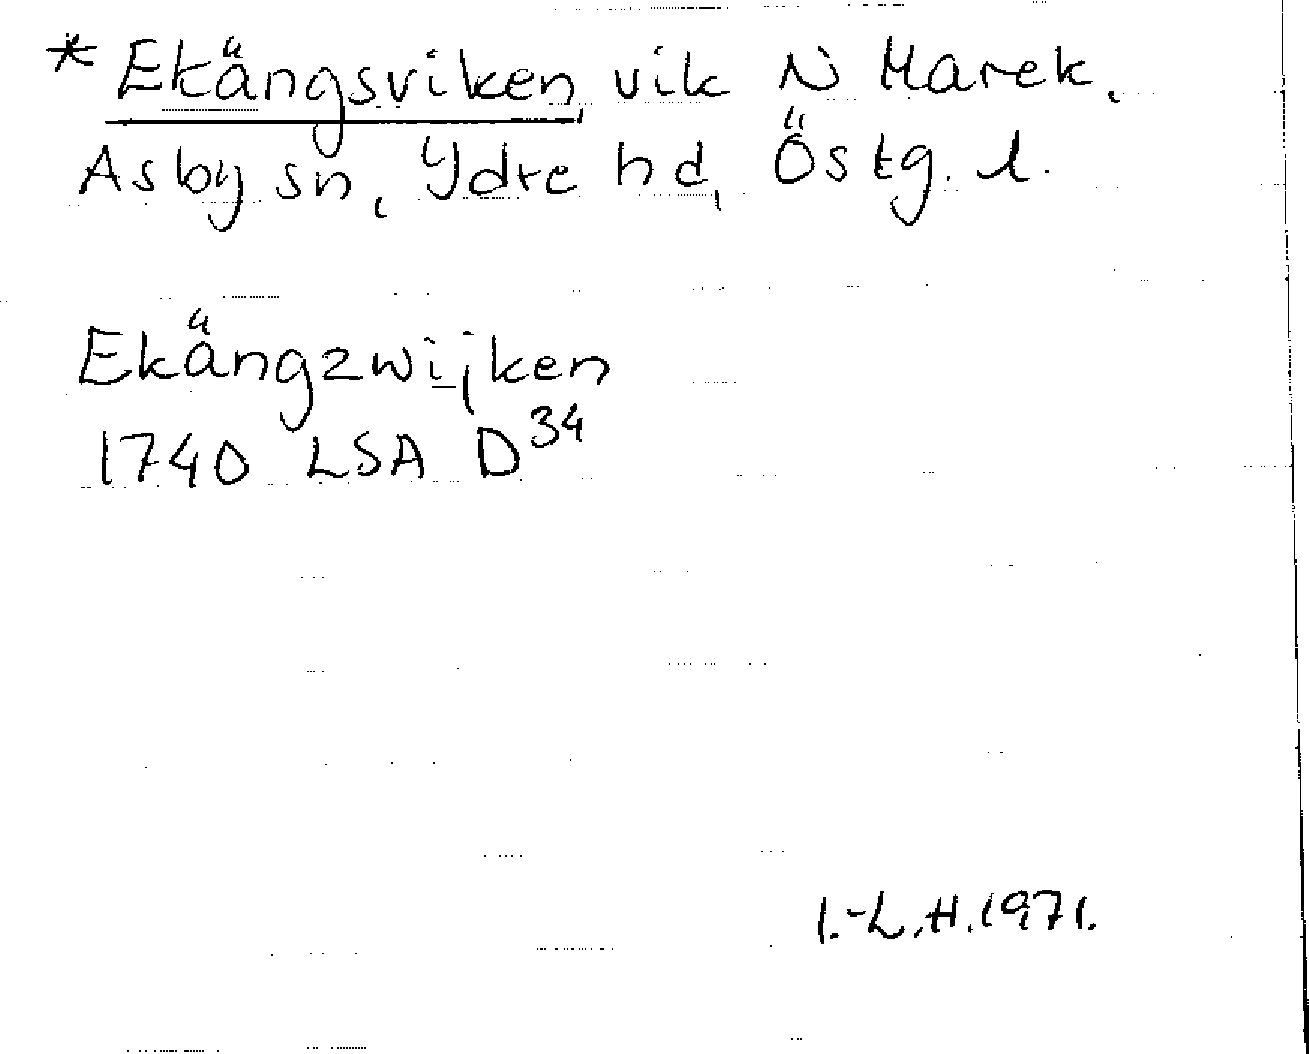 * Ekängsviken, vik N Marek,
Asby sn, Ydre hd, Östg. l.
Ekängzwijken
1740 LSA D34
I.-L.H.1971.